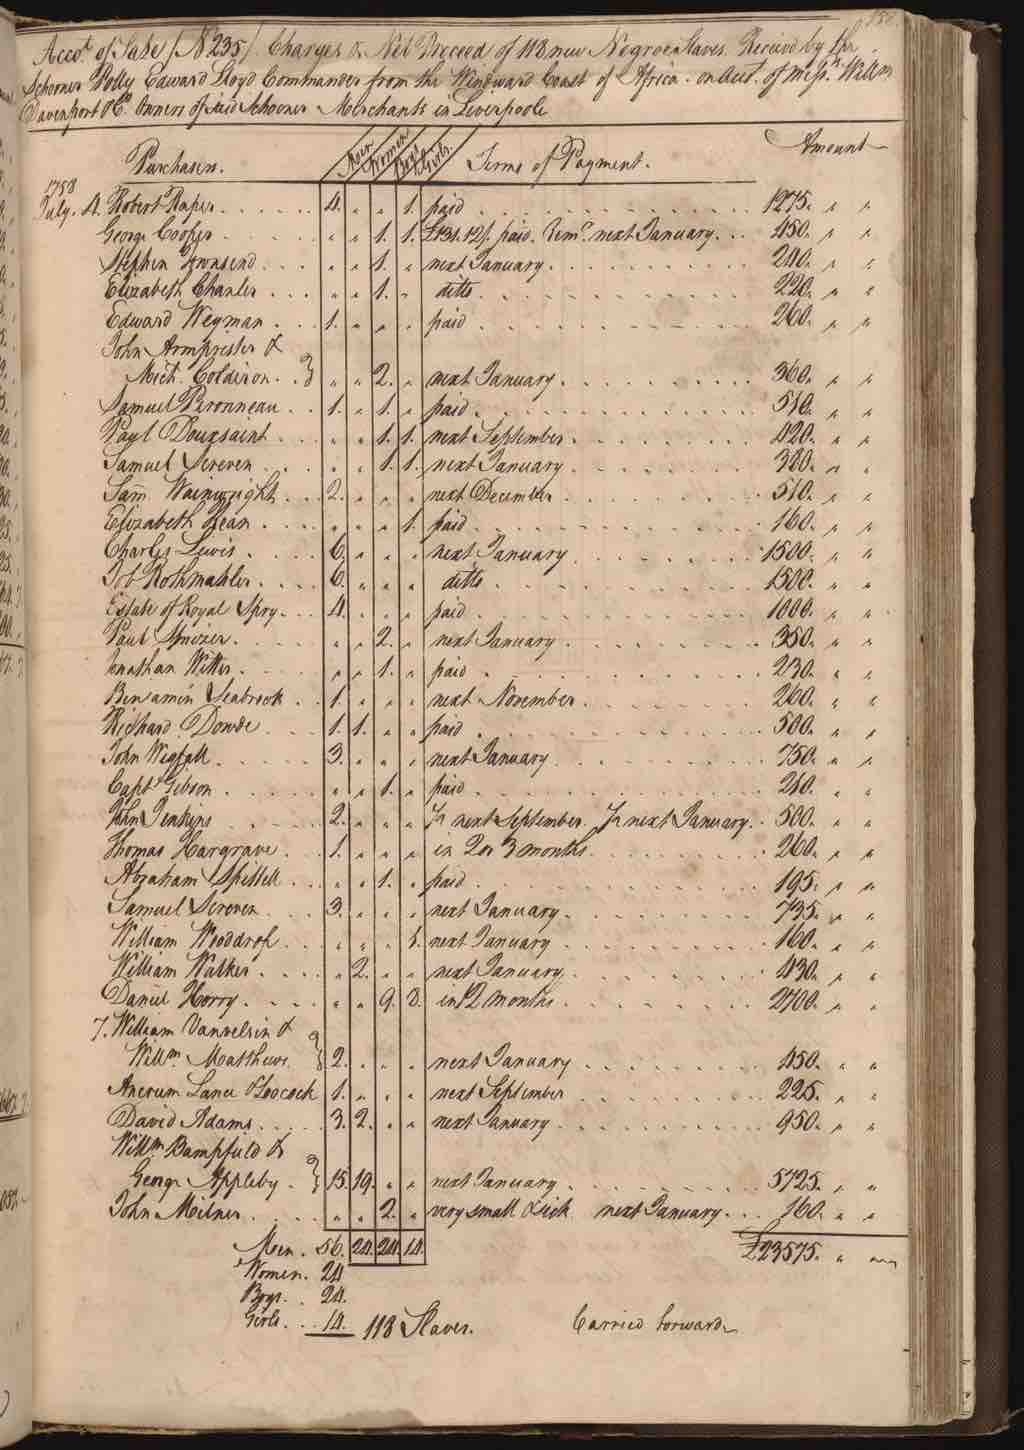 Accot. of Sale /No 235/. Charges & Net Proceed of 118 new Negroe Slaves. Received by the
Schooner Polly Edward Lloyd Commander from the Windward Coast of Africa. on Acct. of Messrs. Willm
Davenport & Co. Owners of said Schooner Merchants in Liverpoole
Purchasers. Men Women Boys Girls. Terms of Payment. Amount
1758
July. 4. Robert Raper 4. " " 1. paid 1275. " "
George Cooper " " 1. 1. £131.12/. paid. Remr. next January 450. " "
Stephen Townsend " " 1. " next January 240. " "
Elizabeth Chanler " " 1. " ditto 220. " "
Edward Weyman 1. " " " paid 260. " "
John Armprister &
Mich. Colderon " " 2. " next January 360. " "
Samuel Peronneau 1. " 1. " paid 510. " "
Paul Douxsaint " " 1. 1. next September 420. " "
Samuel Screven " " 1. 1. next January 320. " "
Sam. Wainwright 2. " " " next December 510. " "
Elizabeth Jean " " " 1. paid 160. " "
Charles Lewis 6. " " " next January 1500. " "
Job Rothmahler 6. " " " ditto 1500. " "
Estate of Royal Spry 4. " " " paid 1000. " "
Paul Smizer " " 2. " next January 350. " "
Jonathan Witter " " 1. " paid 230. " "
Benjamin Seabrook 1. " " " next November 260. " "
Richard Dowde 1. 1. " " paid 500. " "
John Wigfall 3. " " " next January 750. " "
Capt. Gibson " " 1. " paid 210. " "
John Jenkins 2. " " " ½ next September. ½ next January. 500. " "
Thomas Hargrave 1. " " " in 2 or 3 months 260. " "
Abraham Spidell " " 1. " paid 195. " "
Samuel Screven 3. " " " next January 735. " "
William Wooddrof " " " 1. next January 160. " "
William Walker " 2. " " next January 430. " "
Daniel Horry " " 9. 8. in 12 months 2700. " "
7. William Vanvelsin &
Willm. Matthews 2. " " " next January 450. " "
Ancrum Lance & Loocock 1. " " " next September 225. " "
David Adams 3. 2. " " next January 950. " "
Willm Bampfield &
George Appleby 15. 19. " " next January 5725. " "
John Milner " " 2. " very small & sick next January 160. " "
Men. 56. 24. 24. 14. £23575. " "
Women. 24
Boys. 24.
Girls. 14. 118 Slaves. Carried forward